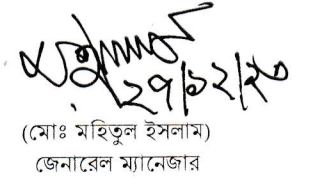 ২৭/১২/২০
(মোঃ মহিতুল ইসলাম)
জেনারেল ম্যানেজার